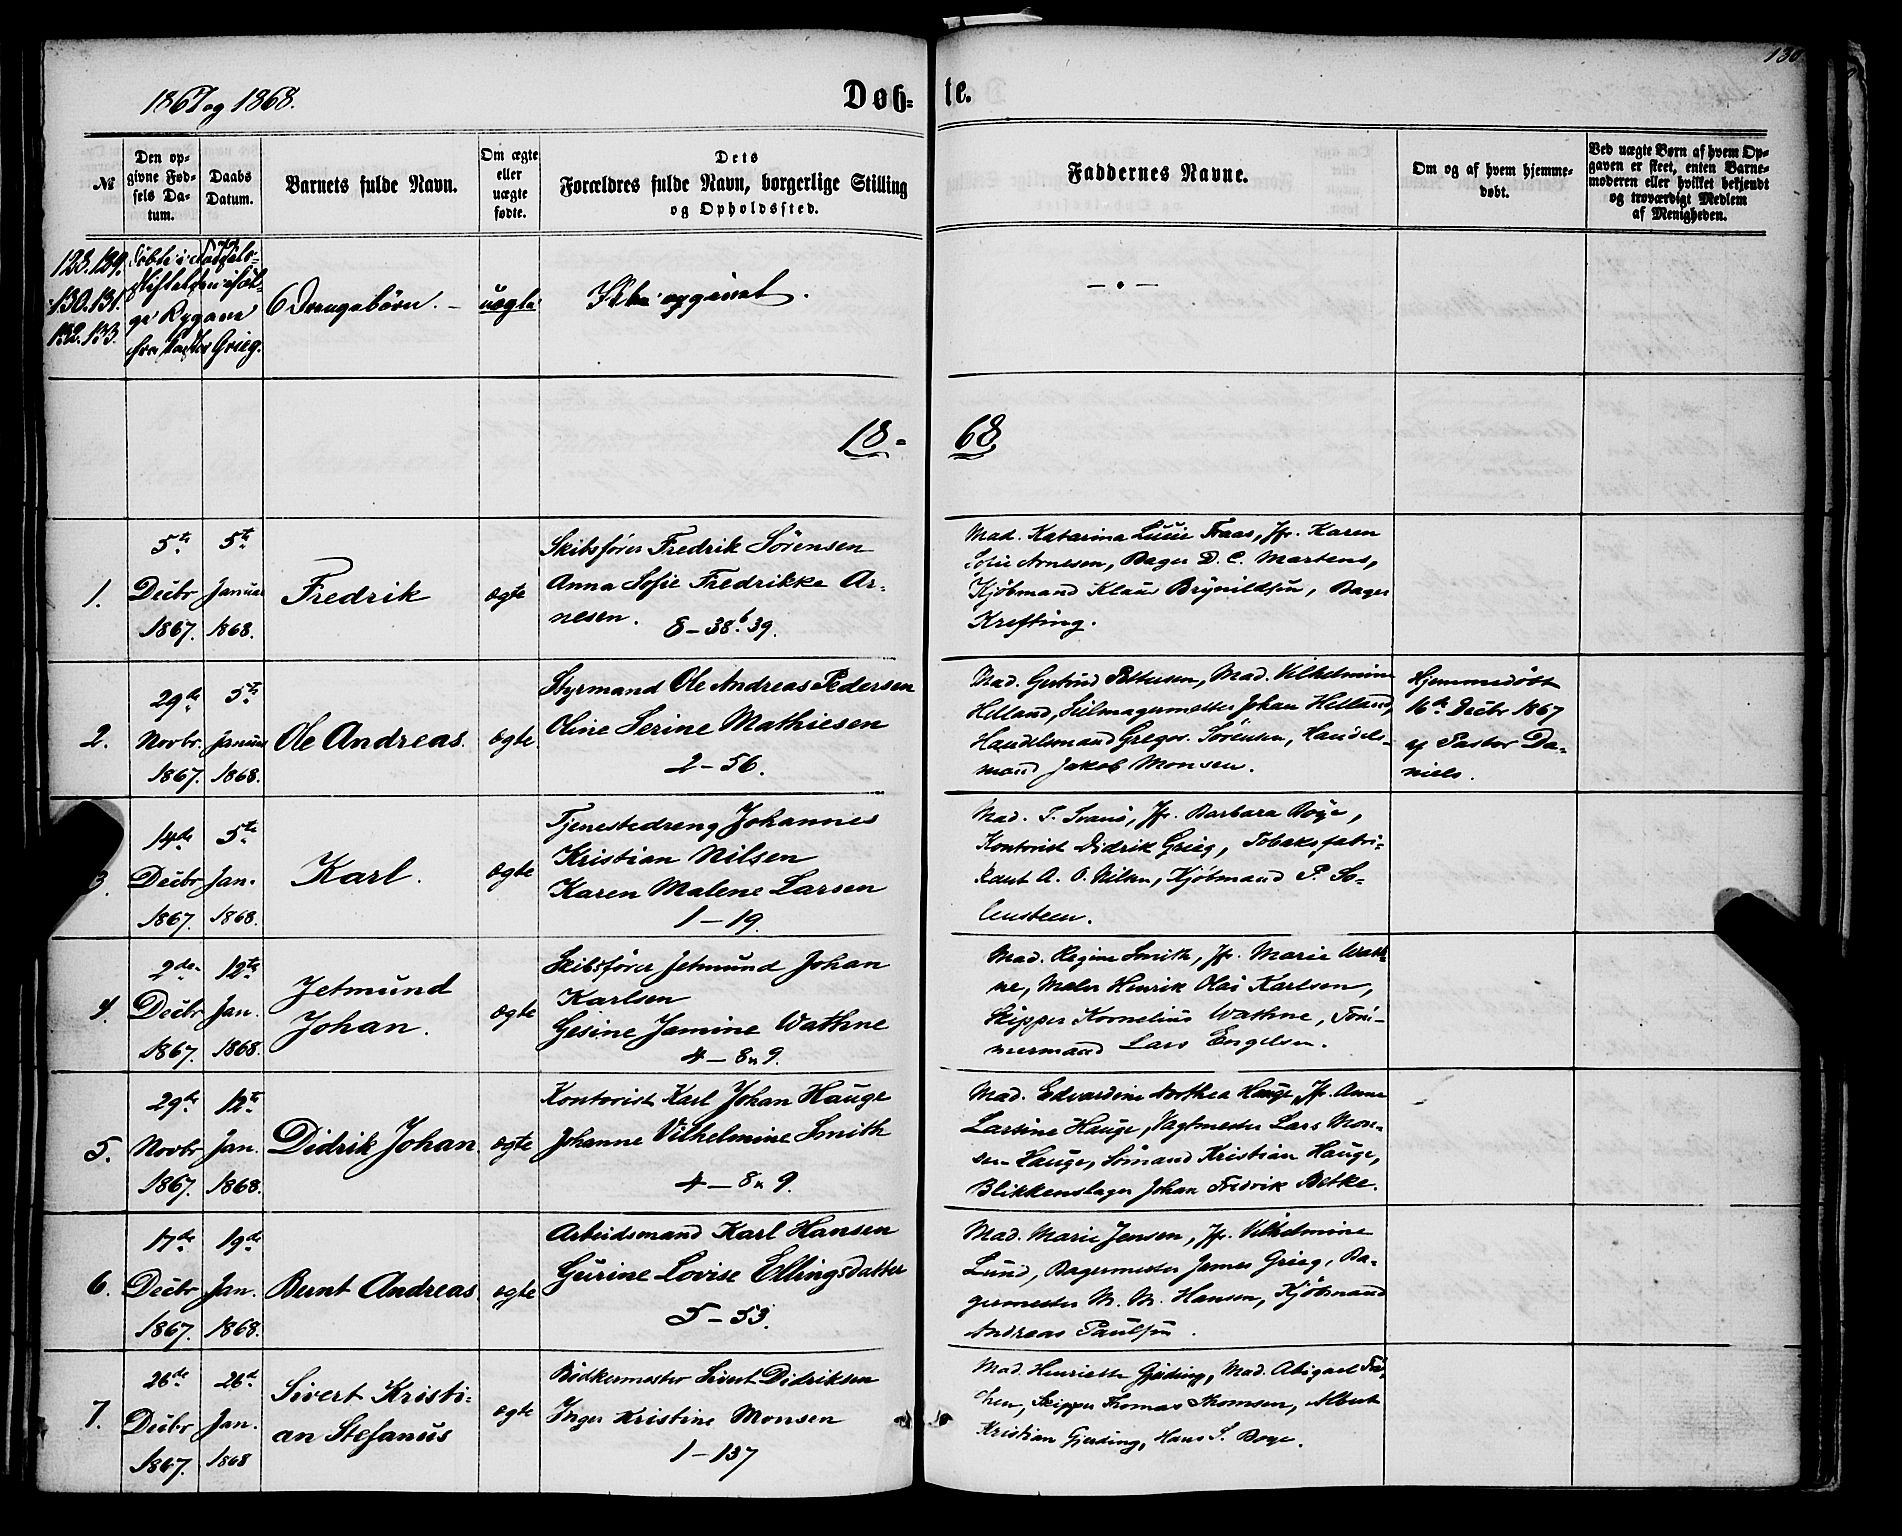 130
1867 og 1868.
Døb- te.
№
Den op-
givne Fød-
sels Da-
tum.
Daabs
Datum.
Barnets fulde Navn.
Om ægte
eller
uægte
fødte.
Dets
Forældres fulde Navn, borgerlige Stilling
og Opholdssted.
Faddernes Navne.
Om og af hvem hjemme-
døbt.
Ved uægte Børn af hvem Op-
gaven er skeet, enten Barne-
moderen eller hvilket bekjendt
og troværdigt Medlem
af Menigheden.
128. 129.
130. 131.
132. 133.
Døbte i
Stiftelsen iføl-
ge Opgave
fra Grieg.
6 Drengebørn. –
uægte
Ikke opgivet.
— • —
18- 68
1.
5te
Decbr
1867.
5te
Januar
1868.
Fredrik
ægte
Skibsfører Fredrik Sörensen
Anna Sofie Fredrikke Ar-
nesen.
8 – 38b 39.
Mad. Katarina Lucie Traas, Jfr. Karen
Sofie Arnesen, Bager D. C. Martens,
Kjöbmand Klaus Brynildsen, Bager
Krefting.
2.
29de
Novbr.
1867.
5te
Januar
1868.
Ole Andreas.
ægte
Styrmand Ole Andreas Pedersen
Oline Serine Mathiesen
2 – 56.
Mad. Gertrud Pettersen, Mad. Vilhelmine
Helland, Seilmagermester Johan Helland,
Handelsmand Greger Sörensen, Handels-
mand Jakob Monsen.
Hjemmedöbt
16de Decbr 1867
af Pastor Da-
niels.
3.
14de
Decbr
1867.
5te
Jan.
1868.
Karl.
ægte
Tjenestedreng Johannes
Kristian Nilsen
Karen Malene Larsen
1 – 19.
Mad. T. Svanö, Jfr. Barbara Böge,
Kontorist Didrik Grieg, Tobaksfabri-
kant A. O. Nilsen, Kjöbmand P. So-
lensteen.
4.
2den
Decbr
1867.
12te
Jan.
1868.
Jetmund
Johan.
ægte
Skibsförer Jetmund Johan
Karlsen
Gesine Jamine Wathne
4 – 8 n 9.
Mad. Regine Smith, Jfr. Marie Wath-
ne, Maler Henrik Olai Karlsen,
Skipper Kornelius Wathne, Töm-
mermand Lars Engelsen.
5.
29de
Novbr
1867.
12te
Jan.
1868.
Didrik Johan
ægte
Kontorist Karl Johan Hauge
Johanne Vilhelmine Smith
4 – 8 n 9.
Mad. Edvardine Dorthea Hauge, Jfr. Anne
Larsine Hauge, Vagtmester Lars Mon-
sen Hauge, Sömand Kristian Hauge,
Blikkenslager Johan Fredrik Betke.
6.
17de
Decbr
1867.
19de
Jan.
1868.
Bernt Andreas.
ægte
Arbeidsmand Karl Hansen
Gurine Lovise Ellingsdatter
5 – 53.
Mad. Marie Jensen, Jfr. Vilhelmine
Lund, Bagermester James Grieg, Ba-
germester M. M. Hansen, Kjöbmand
Andreas Paulsen.
7.
26de
Decbr
1867.
26de
Jan.
1868
Sivert Kristi-
an Stefanus
ægte
Bödkermester Sivert Didriksen
Inger Kristine Monsen
1 – 137
Mad. Henriette Gjerding, Mad. Abigael
Skipper Thomas Thomsen, Albert
Kristian Gjerding, Hans S. Böge.